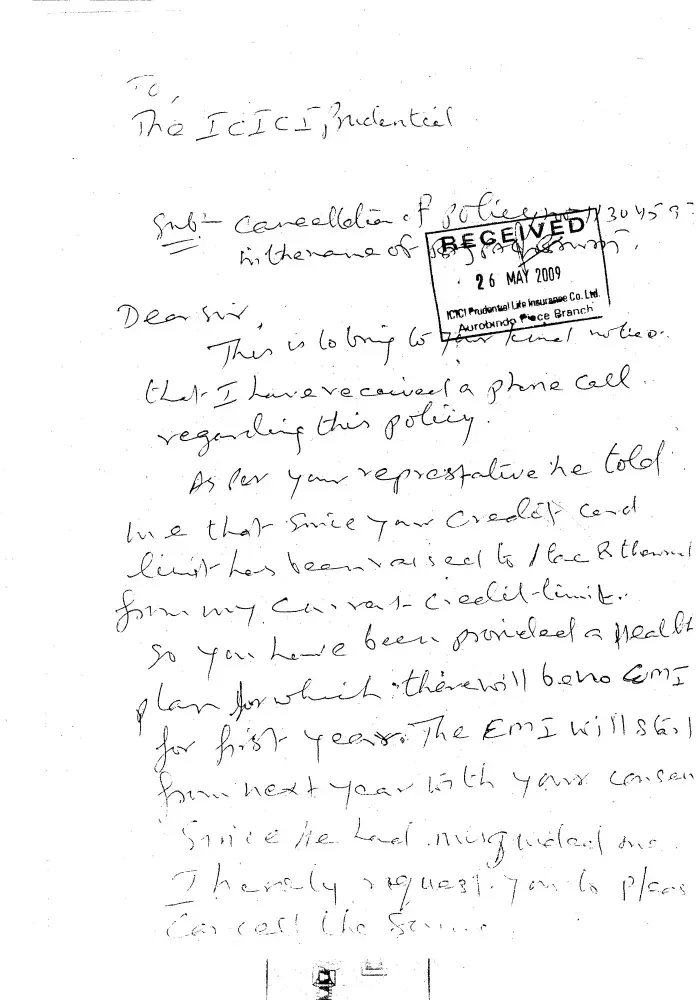 To,
The ICICI Prudential
Sub:- Cancellation of Policy no 11304593
in the name of
RECEIVED
26 MAY 2009
ICICI Prudential Life Insurance Co. Ltd.
Aurobindo Place Branch
Dear Sir,
This is to bring to your kind notice.
that I have received a phone call
regarding this policy.
As per your represtative he told
me that since your credit card
limit has been raised to 1 lac 8 thousand
from my current credit-limit.
So you have been provided a Health
plan for which there will be no EMI
for first year. The EMI will start
from next year with your consen
Since he had misguided me.
I hereby request you to pleas
Cancel the same.